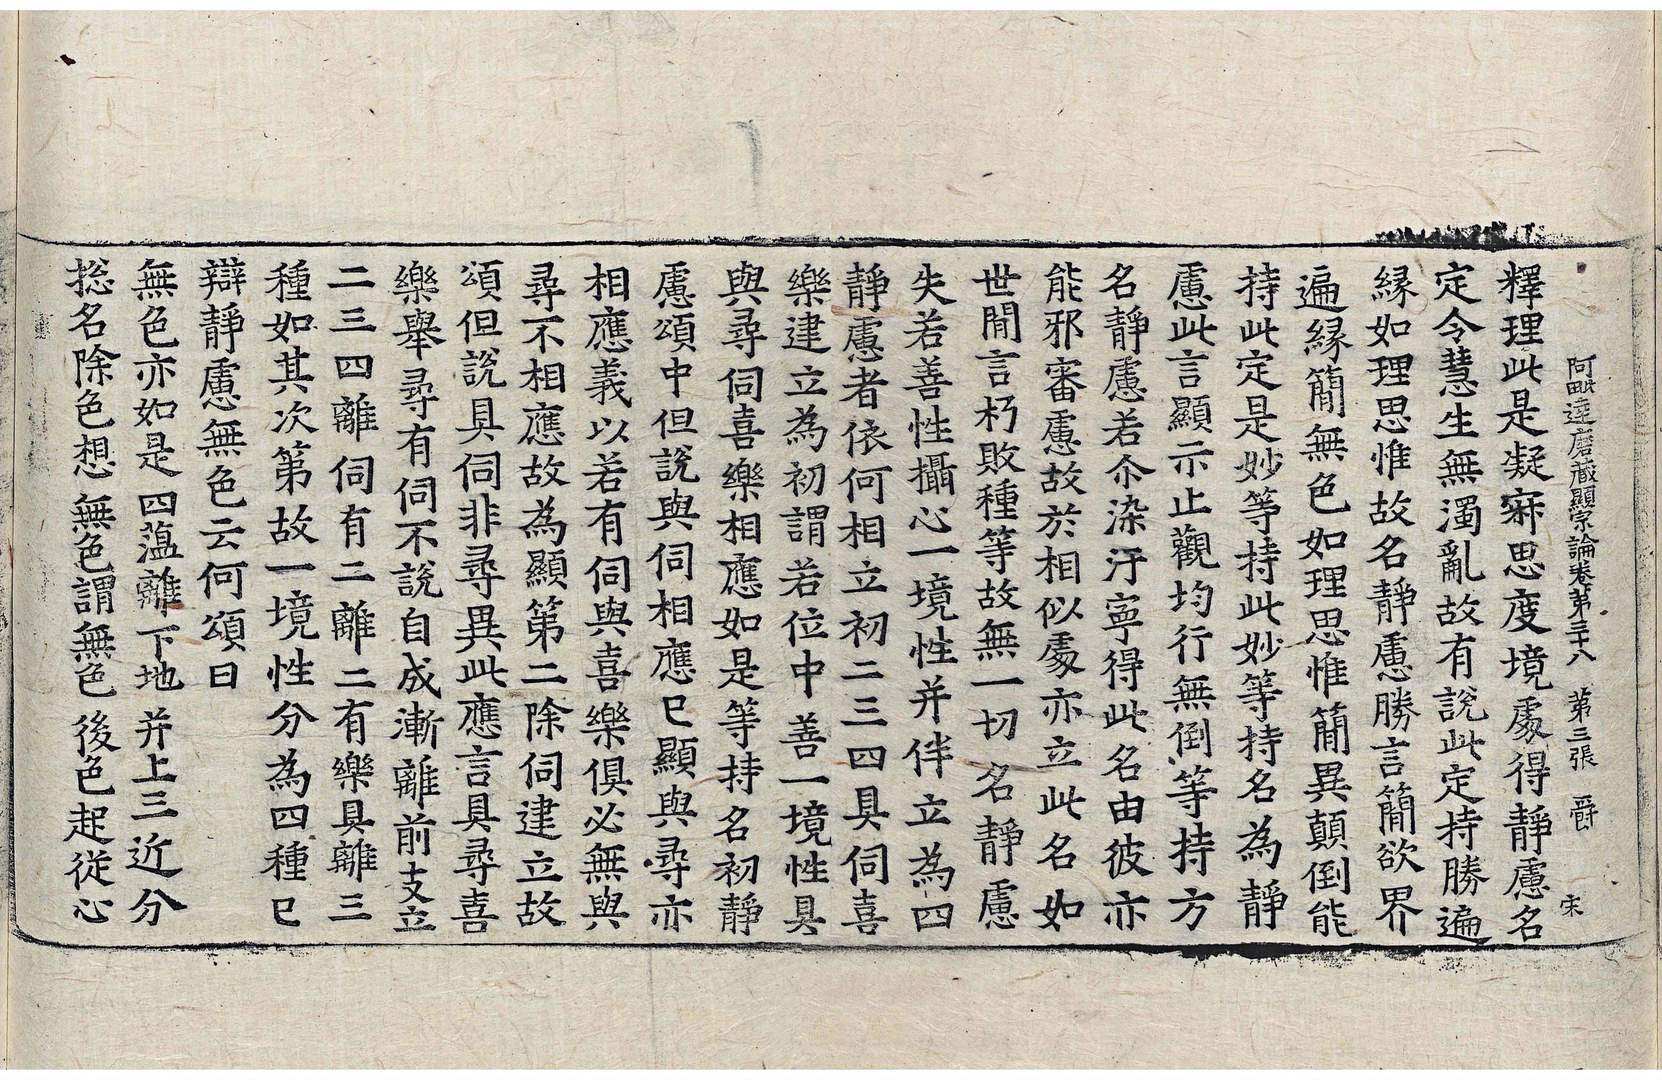 阿毗達磨藏顯宗論卷第三十八 第三張 爵 宋
釋理此是凝寂思度境處得靜慮名
定令慧生無濁亂故有說此定持勝遍
緣如理思惟故名靜慮勝言簡欲界
遍緣簡無色如理思惟簡異顛倒能
持此定是妙等持此妙等持名為靜
慮此言顯示止觀均行無倒等持方
名靜慮若尒染汙寧得此名由彼亦
能邪審慮故於相似處亦立此名如
世閒言朽敗種等故無一切名靜慮
失若善性攝心一境性并伴立為四
靜慮者依何相立初二三四具伺喜
樂建立為初謂若位中善一境性具
與尋伺喜樂相應如是等持名初靜
慮頌中但說與伺相應已顯與尋亦
相應義以若有伺與喜樂俱必無與
尋不相應故為顯第二除伺建立故
頌但說具伺非尋異此應言具尋喜
樂舉尋有伺不說自成漸離前支立
二三四離伺有二離二有樂具離三
種如其次第故一境性分為四種已
辯靜慮無色云何頌曰
無色亦如是四蕰離下地并上三近分
捴名除色想無色謂無色後色起從心